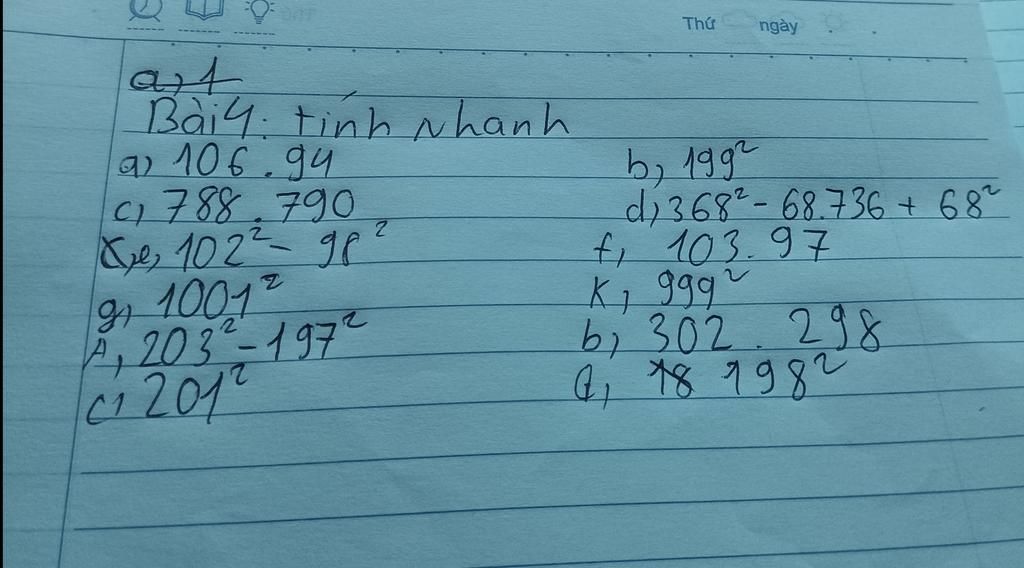 Thứ ngày
a, 1
Bài 4: tính nhanh
a) 106 . 94 b, 199²
c, 788 . 790 d, 368² - 68.736 + 68²
e, 102² - 98² f, 103 . 97
g, 1001² K, 999²
A, 203² - 197² b, 302 . 298
c, 201² d, 18 198²